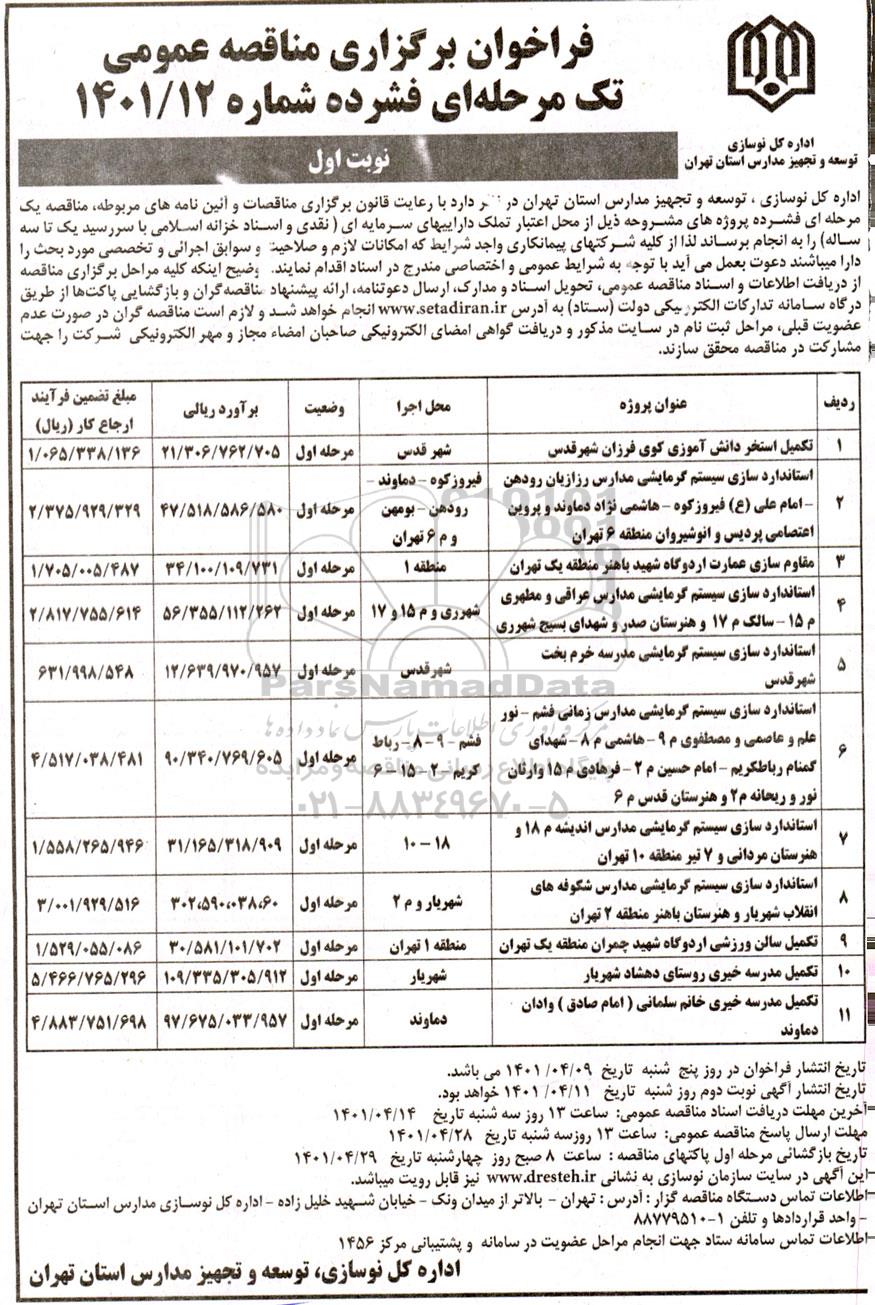 فراخوان برگزاری مناقصه عمومی
تک مرحله‌ای فشرده شماره ۱۴۰۱/۱۲
اداره کل نوسازی
توسعه و تجهیز مدارس استان تهران
نوبت اول
اداره کل نوسازی ، توسعه و تجهیز مدارس استان تهران در دارد با رعایت قانون برگزاری مناقصات و آئین نامه های مربوطه، مناقصه یک
مرحله ای فشرده پروژه های مشروحه ذیل از محل اعتبار تملک داراییهای سرمایه ای ( نقدی و اسناد خزانه اسلامی با سررسید یک تا سه
ساله) را به انجام برساند لذا از کلیه شرکتهای پیمانکاری واجد شرایط که امکانات لازم و صلاحیت و سوابق اجرائی و تخصصی مورد بحث را
دارا میباشند دعوت بعمل می آید با توجه به شرایط عمومی و اختصاصی مندرج در اسناد اقدام نمایند. وضیح اینکه کلیه مراحل برگزاری مناقصه
از دریافت اطلاعات و اسناد مناقصه عمومی، تحویل اسناد و مدارک، ارسال دعوتنامه، ارائه پیشنهاد مناقصه‌گران و بازگشایی پاکت‌ها از طریق
درگاه سامانه تدارکات الکترونیکی دولت (ستاد) به آدرس www.setadiran.ir انجام خواهد شد و لازم است مناقصه گران در صورت عدم
عضویت قبلی، مراحل ثبت نام در سایت مذکور و دریافت گواهی امضای الکترونیکی صاحبان امضاء مجاز و مهر الکترونیکی شرکت را جهت
مشارکت در مناقصه محقق سازند.
ردیف عنوان پروژه محل اجرا وضعیت برآورد ریالی مبلغ تضمین فرآیند
ارجاع کار (ریال)
۱ تکمیل استخر دانش آموزی کوی فرزان شهرقدس شهر قدس مرحله اول ۲۱/۳۰۶/۷۶۲/۷۰۵ ۱/۰۶۵/۳۳۸/۱۳۶
استاندارد سازی سیستم گرمایشی مدارس رزازیان رودهن فیروزکوه - دماوند -
۲ - امام علی (ع) فیروزکوه - هاشمی نژاد دماوند و پروین رودهن - بومهن مرحله اول ۴۷/۵۱۸/۵۸۶/۵۸۰ ۲/۳۷۵/۹۲۹/۳۲۹
اعتصامی پردیس و انوشیروان منطقه ۶ تهران و م ۶ تهران
۳ مقاوم سازی عمارت اردوگاه شهید باهنر منطقه یک تهران منطقه ۱ مرحله اول ۳۴/۱۰۰/۱۰۹/۷۳۱ ۱/۷۰۵/۰۰۵/۴۸۷
استاندارد سازی سیستم گرمایشی مدارس عراقی و مطهری
۴ م ۱۵ - سالک م ۱۷ و هنرستان صدر و شهدای بسیج شهرری شهرری و م ۱۵ و ۱۷ مرحله اول ۵۶/۳۵۵/۱۱۲/۲۶۲ ۲/۸۱۷/۷۵۵/۶۱۴
استاندارد سازی سیستم گرمایشی مدرسه خرم بخت
۵ شهرقدس شهرقدس مرحله اول ۱۲/۶۳۹/۹۷۰/۹۵۷ ۶۳۱/۹۹۸/۵۴۸
استاندارد سازی سیستم گرمایشی مدارس زمانی فشم - نور
علم و عاصمی و مصطفوی م ۹ - هاشمی م ۸ - شهدای فشم - ۹ - ۸ - رباط
۶ گمنام رباطکریم - امام حسین م ۲ - فرهادی م ۱۵ وارثان کریم - ۲ - ۱۵ - ۶ مرحله اول ۹۰/۳۴۰/۷۶۹/۶۰۵ ۴/۵۱۷/۰۳۸/۴۸۱
نور و ریحانه م۲ و هنرستان قدس م ۶
استاندارد سازی سیستم گرمایشی مدارس اندیشه م ۱۸ و
۷ هنرستان مردانی و ۷ تیر منطقه ۱۰ تهران ۱۸ - ۱۰ مرحله اول ۳۱/۱۶۵/۳۱۸/۹۰۹ ۱/۵۵۸/۲۶۵/۹۴۶
استاندارد سازی سیستم گرمایشی مدارس شکوفه های
۸ انقلاب شهریار و هنرستان باهنر منطقه ۲ تهران شهریار و م ۲ مرحله اول ۳۰۲،۵۹۰،۰۳۸،۶۰ ۳/۰۰۱/۹۲۹/۵۱۶
۹ تکمیل سالن ورزشی اردوگاه شهید چمران منطقه یک تهران منطقه ۱ تهران مرحله اول ۳۰/۵۸۱/۱۰۱/۷۰۲ ۱/۵۲۹/۰۵۵/۰۸۶
۱۰ تکمیل مدرسه خیری روستای دهشاد شهریار شهریار مرحله اول ۱۰۹/۳۳۵/۳۰۵/۹۱۲ ۵/۴۶۶/۷۶۵/۲۹۶
۱۱ تکمیل مدرسه خیری خانم سلمانی ( امام صادق ) وادان دماوند مرحله اول ۹۷/۶۷۵/۰۳۳/۹۵۷ ۴/۸۸۳/۷۵۱/۶۹۸
دماوند
ParsNamadData
مرکز فرآوری اطلاعات پارس نماد داده ها
پایگاه اطلاع رسانی مناقصه و مزایده
۰۲۱-۸۸۳۴۹۶۷۰-۵
تاریخ انتشار فراخوان در روز پنج شنبه تاریخ ۱۴۰۱/۰۴/۰۹ می باشد.
تاریخ انتشار آگهی نوبت دوم روز شنبه تاریخ ۱۴۰۱/۰۴/۱۱ خواهد بود.
آخرین مهلت دریافت اسناد مناقصه عمومی: ساعت ۱۳ روز سه شنبه تاریخ ۱۴۰۱/۰۴/۱۴
مهلت ارسال پاسخ مناقصه عمومی: ساعت ۱۳ روزسه شنبه تاریخ ۱۴۰۱/۰۴/۲۸
تاریخ بازگشائی مرحله اول پاکتهای مناقصه : ساعت ۸ صبح روز چهارشنبه تاریخ ۱۴۰۱/۰۴/۲۹
-این آگهی در سایت سازمان نوسازی به نشانی www.dresteh.ir نیز قابل رویت میباشد.
-اطلاعات تماس دستگاه مناقصه گزار : آدرس : تهران - بالاتر از میدان ونک - خیابان شهید خلیل زاده - اداره کل نوسازی مدارس استان تهران
- واحد قراردادها و تلفن ۱-۸۸۷۷۹۵۱۰
-اطلاعات تماس سامانه ستاد جهت انجام مراحل عضویت در سامانه و پشتیبانی مرکز ۱۴۵۶
اداره کل نوسازی، توسعه و تجهیز مدارس استان تهران